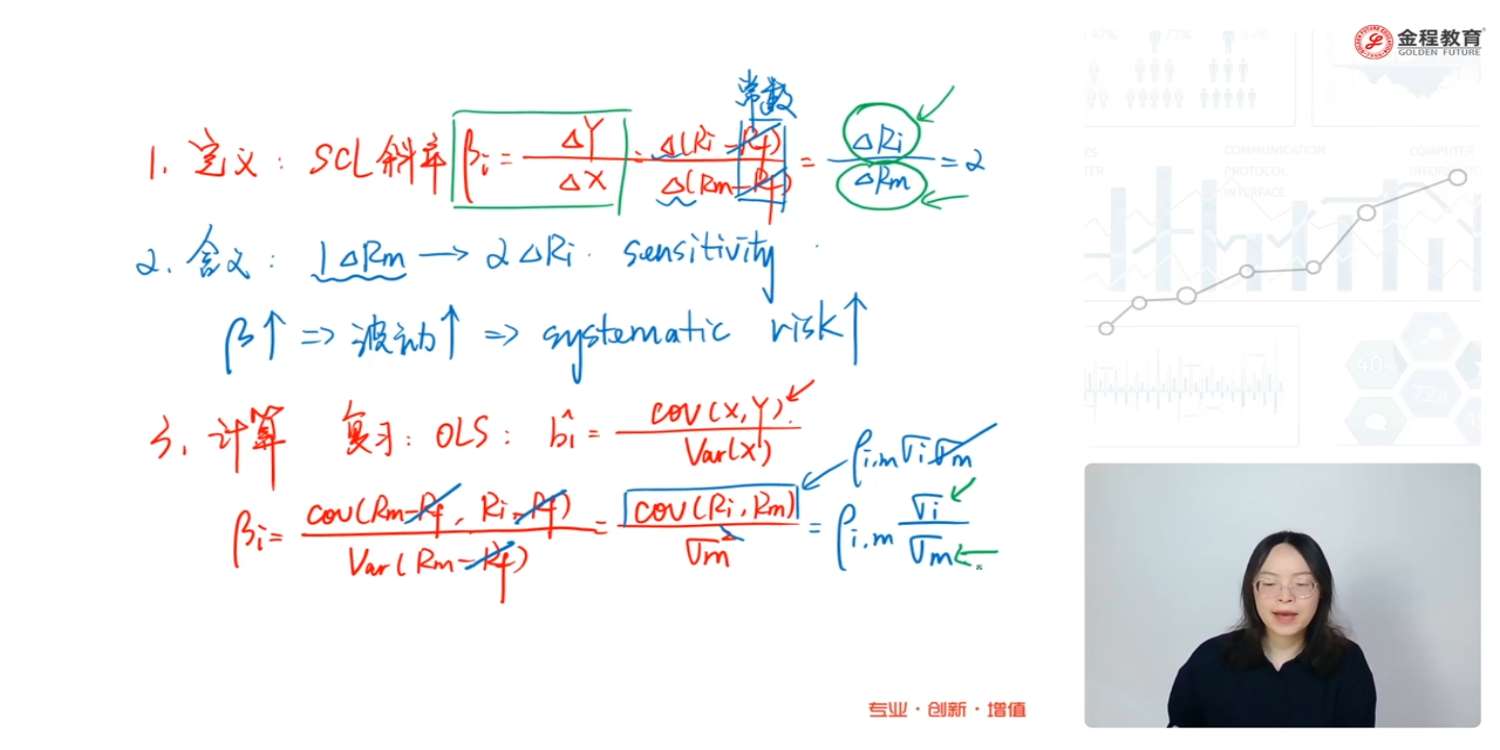 金程教育
GOLDEN FUTURE
常数
1. 定义: SCL斜率 βi = ΔY/ΔX = Δ(Ri-Rf)/Δ(Rm-Rf) = ΔRi/ΔRm = 2
2. 含义: 1ΔRm → 2ΔRi. sensitivity
β↑ => 波动↑ => systematic risk↑
3. 计算 复习: OLS: b̂i = cov(X,Y)/Var(X)
ρi,m σi σm
βi = cov(Rm-Rf, Ri-Rf)/Var(Rm-Rf) = cov(Ri,Rm)/σm² = ρi,m σi/σm
COMMUNICATION
PROTOCOL
INTERFACE
COMPUTER
专业·创新·增值